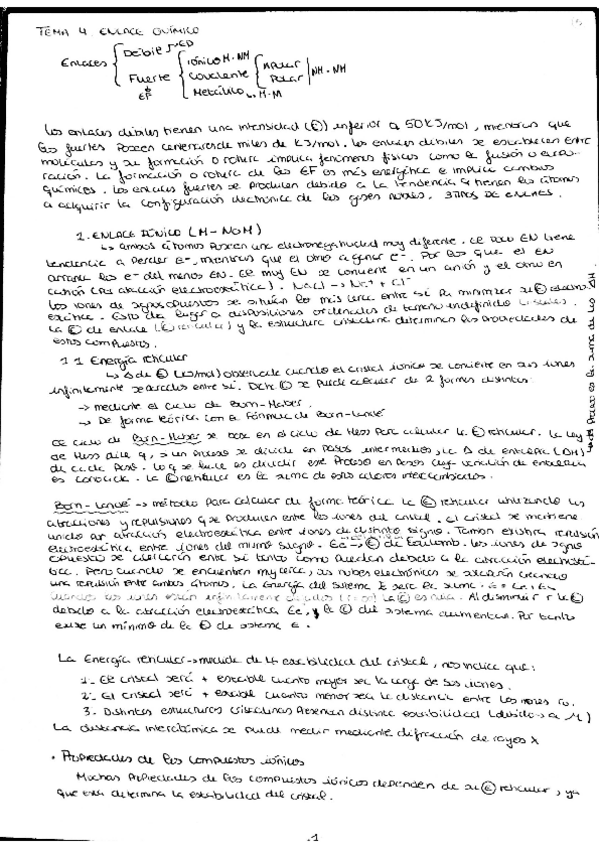 TEMA 4 ENLACE QUÍMICO
Enlaces
Débil
Fuerte
EF
iónico M-NM
Covalente
Metálico M-M
Apolar
Polar
NM-NM
los enlaces débiles tienen una intensidad (E) inferior a 50KJ/mol, mientras que
los fuertes poseen de miles de KJ/mol. los enlaces débiles se establecen entre
moléculas y su formación o rotura implica fenómenos físicos como la fusión o
ración. La formación o rotura de los EF es más energética e implica cambios
químicos. los enlaces fuertes se producen debido a la tendencia q tienen los átomos
a adquirir la configuración electrónica de los gases nobles. 3 TIPOS DE ENLACES.
1. ENLACE IÓNICO (M-NOM)
↳ ambos átomos poseen una electronegatividad muy diferente. el poco EN tiene
tendencia a perder e-, mientras que el otro a ganar e-. Por lo que el EN
los e- del menos EN. el muy EN se convierte en un anión y el otro en
catión (por atracción electroestática). NaCl → Na+ + Cl-
los iones de signos opuestos se sitúan lo más cerca entre sí para minimizar su E
Esto da lugar a disposiciones ordenadas de tamaño indefinido
la E de enlace (E reticular) y la estructura cristalina determinan las propiedades de
estos compuestos.
1.1 Energía reticular
↳ Δ de E (KJ/mol) observada cuando el cristal iónico se convierte en sus iones
infinitamente separados entre sí. Dicha E se puede calcular de 2 formas distintas:
→ mediante el ciclo de Born-Haber.
→ De forma teórica con la fórmula de Born-Landé
El ciclo de Born-Haber se basa en el ciclo de Hess para calcular la E reticular. La ley
de Hess dice q, un proceso se divide en pasos intermedios, la Δ de entalpía (ΔH)
de cada paso. Lo q se hace es dividir este proceso en pasos cuya variación de entalpía
es conocida. La E reticular es la suma de estos valores intercambiados.
Born-Landé → método para calcular de forma teórica la E reticular utilizando las
atracciones y repulsiones q se producen entre los iones del cristal. el cristal se mantiene
unido por atracción electroestática entre iones de distinto signo. También existirá repulsión
electroestática entre iones del mismo signo. Ec → E de Coulomb. los iones de signo
opuesto se acercarán entre sí tanto como puedan debido a la atracción
Pero cuando se encuentren muy cerca, las nubes electrónicas se creando
una repulsión entre ambos átomos. La energía del sistema E será la suma
la E es nula. Al disminuir r la E
debido a la atracción electroestática Ec, y la E del sistema aumentará. Por tanto
existe un mínimo de la E de sistema E.
La Energía reticular → medida de la estabilidad del cristal, nos indica que:
1- El cristal será + estable cuanto mayor sea la carga de sus iones.
2- El cristal será + estable cuanto menor sea la distancia entre los iones ro.
3. Distintas estructuras cristalinas presentan distinta estabilidad (debido → a M)
La distancia interatómica se puede medir mediante difracción de rayos X
• Propiedades de los compuestos iónicos
Muchas propiedades de los compuestos iónicos dependen de su E reticular, ya
que esta determina la estabilidad del cristal.
1